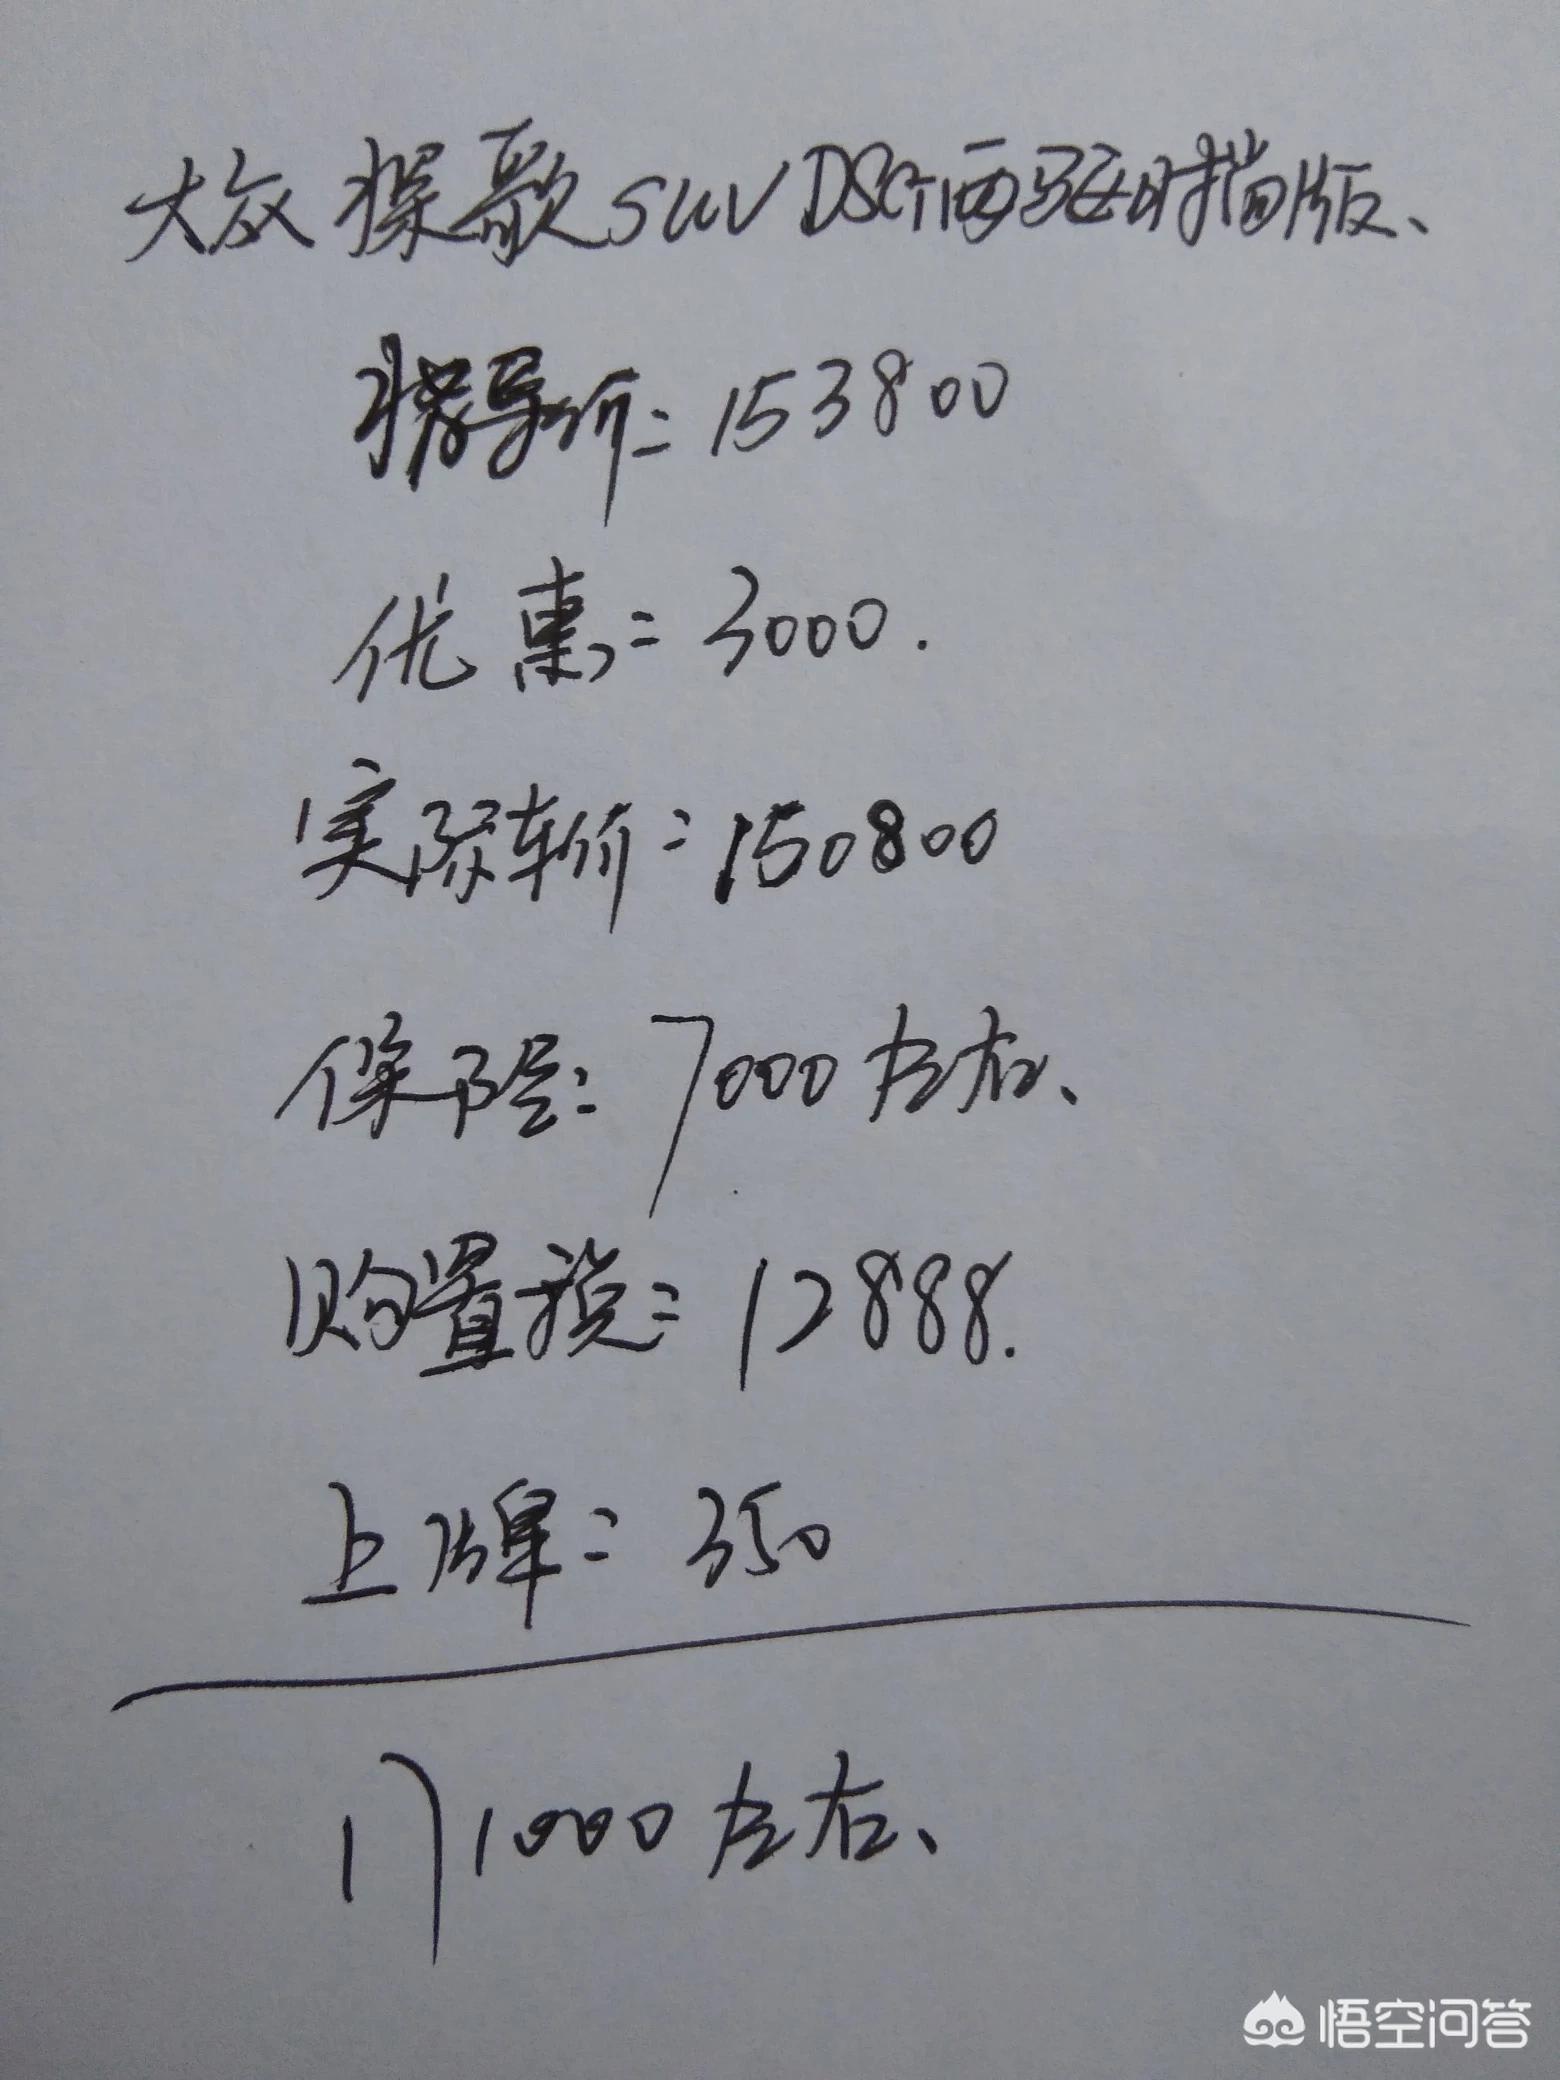 大众探歌SUV DSG两驱时尚版、
指导价=153800
优惠=3000.
实际车价=150800
保险=7000左右、
购置税=12888.
上牌=350
171000左右、
悟空问答